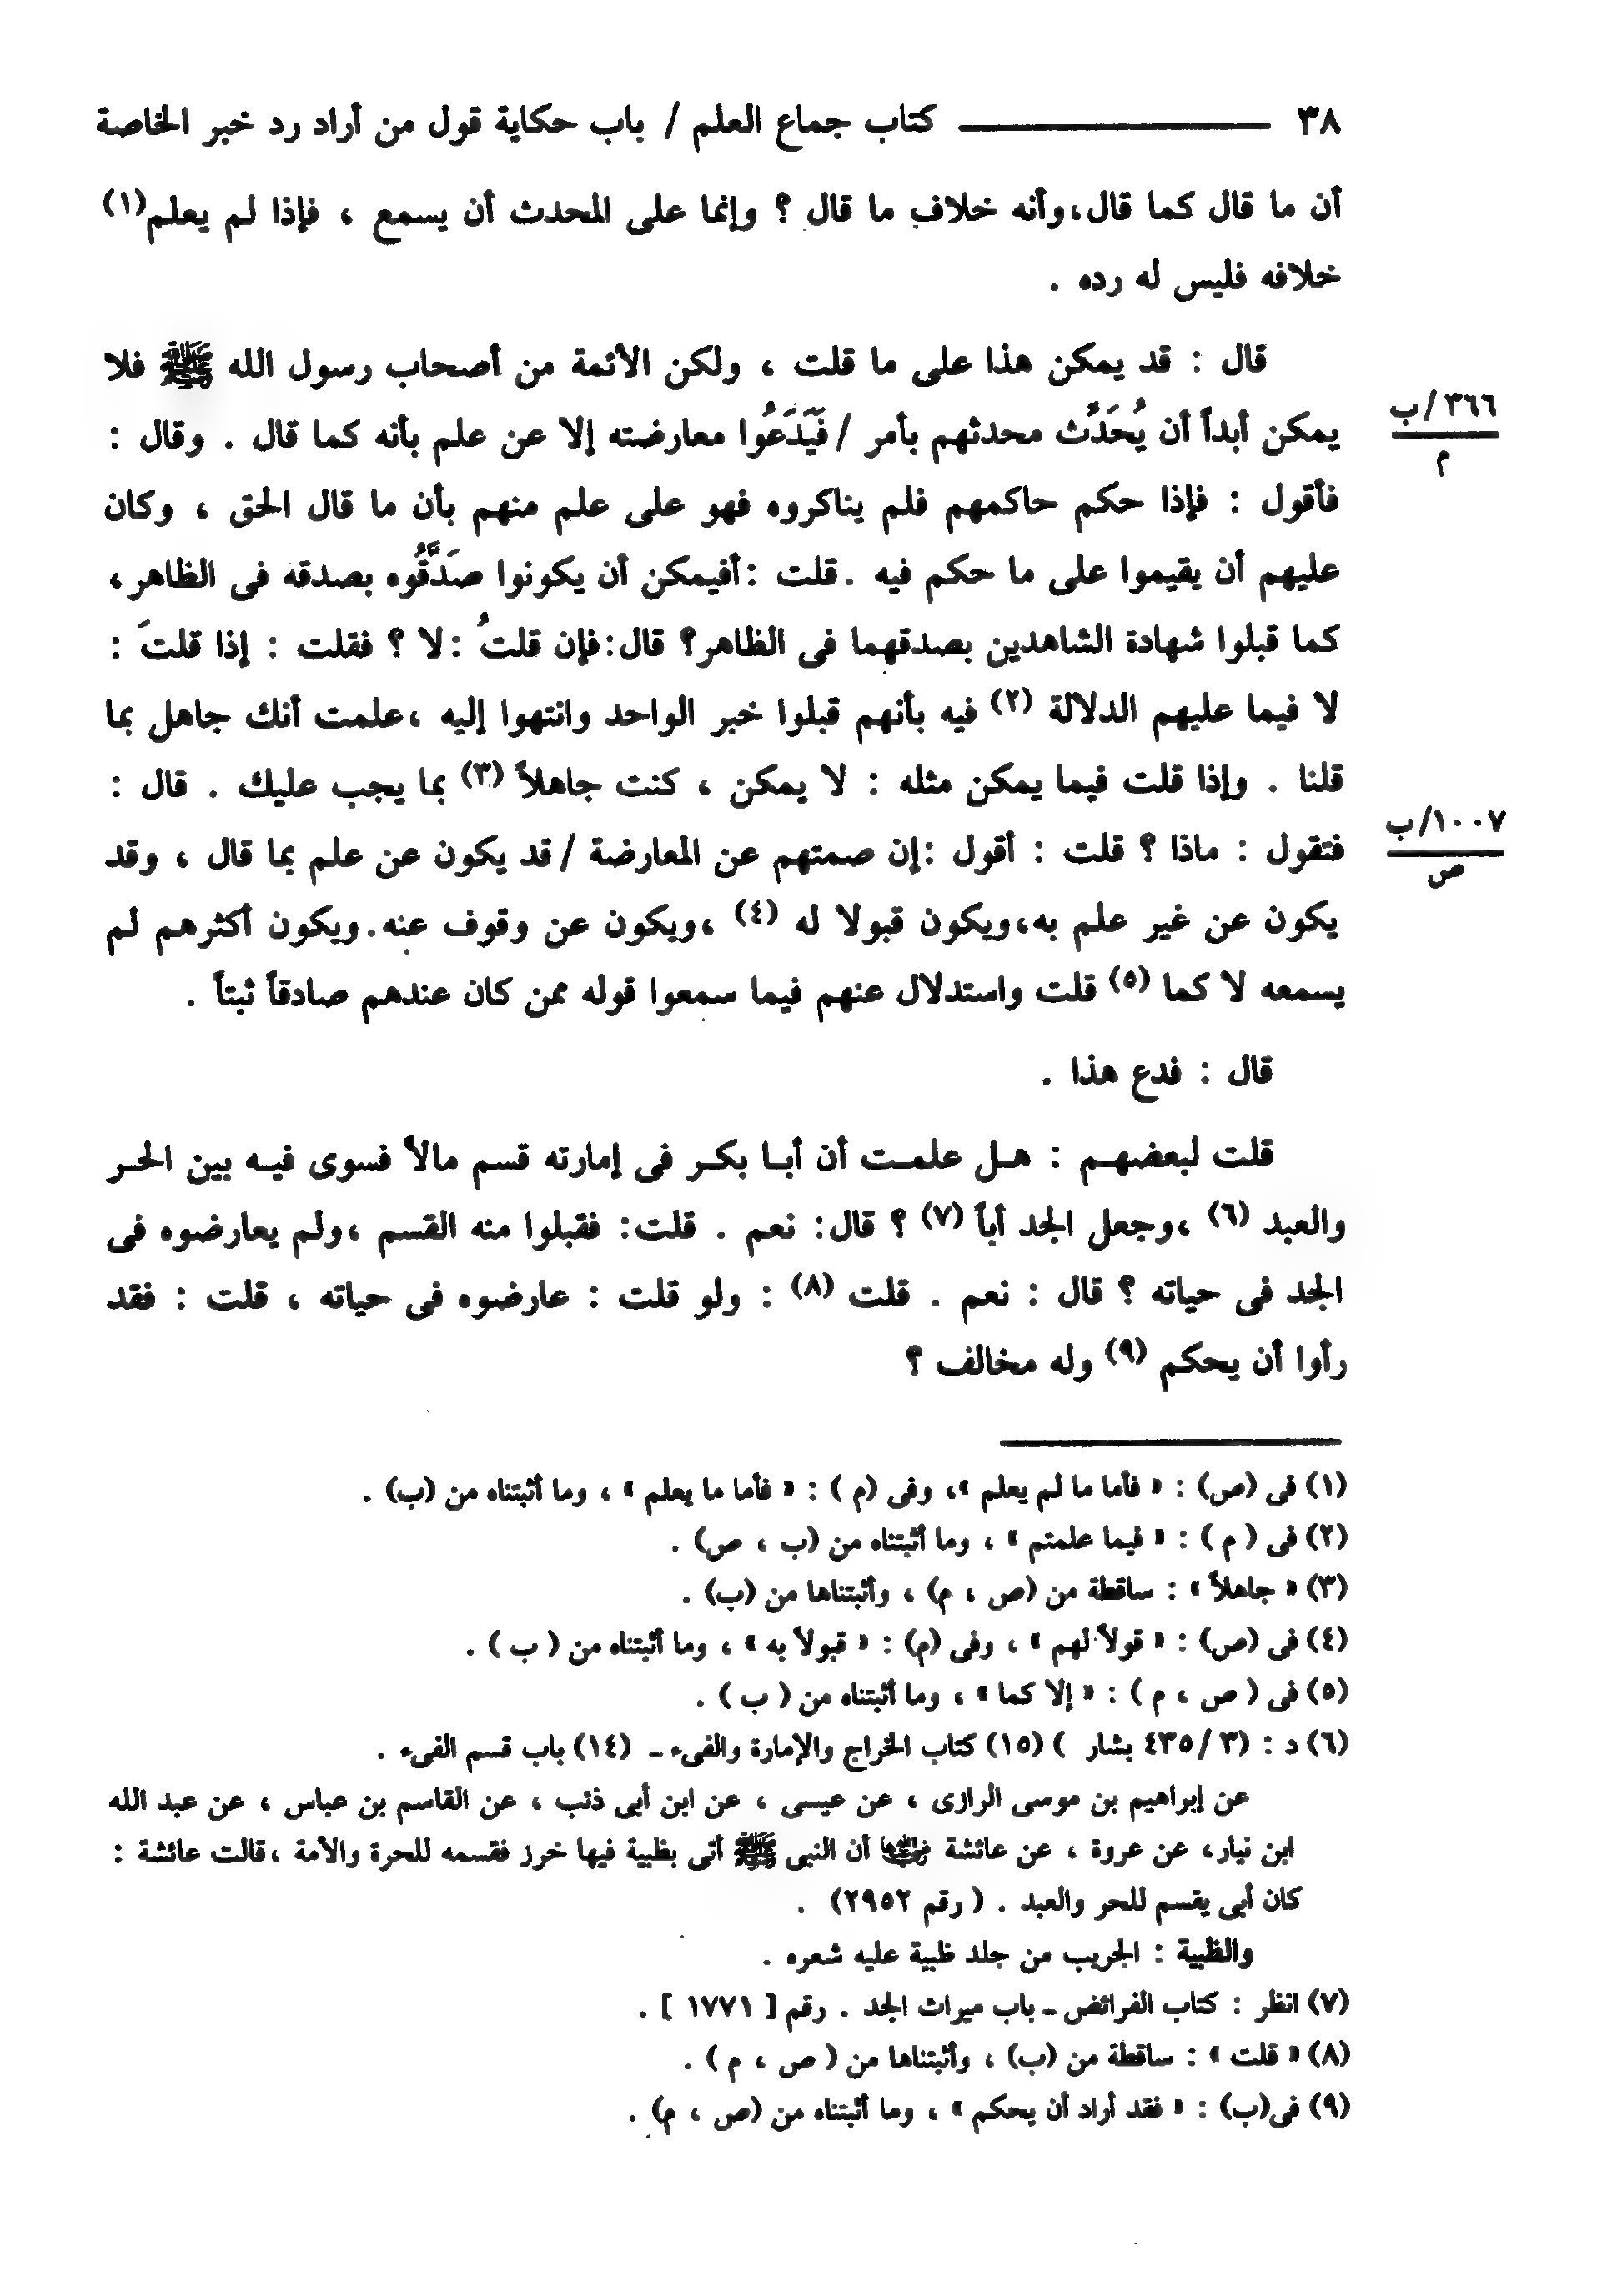 ٣٨ ــــــــــــ كتاب جماع العلم / باب حكاية قول من أراد رد خبر الخاصة
أن ما قال كما قال،وأنه خلاف ما قال ؟ وإنما على المحدث أن يسمع ، فإذا لم يعلم(١)
خلافه فليس له رده .
قال : قد يمكن هذا على ما قلت ، ولكن الأئمة من أصحاب رسول الله ﷺ فلا
يمكن أبداً أن يُحَدِّث محدثهم بأمر / فَيَدَعُوا معارضته إلا عن علم بأنه كما قال . وقال :
٣٦٦/ب
م
فأقول : فإذا حكم حاكمهم فلم يناكروه فهو على علم منهم بأن ما قال الحق ، وكان
عليهم أن يقيموا على ما حكم فيه .قلت :أفيمكن أن يكونوا صَدَّقُوه بصدقه فى الظاهر،
كما قبلوا شهادة الشاهدين بصدقهما فى الظاهر؟ قال:فإن قلتُ :لا ؟ فقلت : إذا قلتَ :
لا فيما عليهم الدلالة (٢) فيه بأنهم قبلوا خبر الواحد وانتهوا إليه ،علمت أنك جاهل بما
قلنا . وإذا قلت فيما يمكن مثله : لا يمكن ، كنت جاهلاً (٣) بما يجب عليك . قال :
فتقول : ماذا ؟ قلت : أقول :إن صمتهم عن المعارضة /قد يكون عن علم بما قال ، وقد
١٠٠٧/ب
ص
يكون عن غير علم به،ويكون قبولا له (٤) ،ويكون عن وقوف عنه.ويكون أكثرهم لم
يسمعه لا كما (٥) قلت واستدلال عنهم فيما سمعوا قوله ممن كان عندهم صادقاً ثبتاً .
قال : فدع هذا .
قلت لبعضهـم : هـل علمـت أن أبـا بكـر فى إمارته قسم مالاً فسوى فيـه بين الحـر
والعبد (٦) ،وجعل الجد أباً (٧) ؟ قال: نعم . قلت: فقبلوا منه القسم ،ولم يعارضوه فى
الجد فى حياته ؟ قال : نعم . قلت (٨) : ولو قلت : عارضوه فى حياته ، قلت : فقد
رأوا أن يحكم (٩) وله مخالف ؟
(١) فى (ص) : « فأما ما لم يعلم »، وفى (م ) : « فأما ما يعلم » ، وما أثبتناه من (ب) .
(٢) فى ( م ) : « فيما علمتم » ، وما أثبتناه من (ب ، ص) .
(٣) « جاهلاً » : ساقطة من (ص ، م) ، وأثبتناها من (ب) .
(٤) فى (ص) : « قولاً لهم » ، وفى (م) : « قبولاً به » ، وما أثبتناه من ( ب ) .
(٥) فى ( ص ، م ) : « إلا كما » ، وما أثبتناه من ( ب ) .
(٦) د : (٣/ ٤٣٥ بشار ) (١٥) كتاب الخراج والإمارة والفىء ـ (١٤) باب قسم الفىء .
عن إبراهيم بن موسى الرازى ، عن عيسى ، عن ابن أبى ذئب ، عن القاسم بن عباس ، عن عبد الله
ابن نيار، عن عروة ، عن عائشة رضي الله عنها أن النبى ﷺ أتى بظبية فيها خرز فقسمه للحرة والأمة ،قالت عائشة :
كان أبى يقسم للحر والعبد . ( رقم ٢٩٥٢) .
والظبية : الجريب من جلد ظبية عليه شعره .
(٧) انظر : كتاب الفرائض ـ باب ميراث الجد . رقم [ ١٧٧١ ] .
(٨) « قلت » : ساقطة من (ب) ، وأثبتناها من ( ص ، م ) .
(٩) فى(ب) : « فقد أراد أن يحكم » ، وما أثبتناه من (ص ، م) .